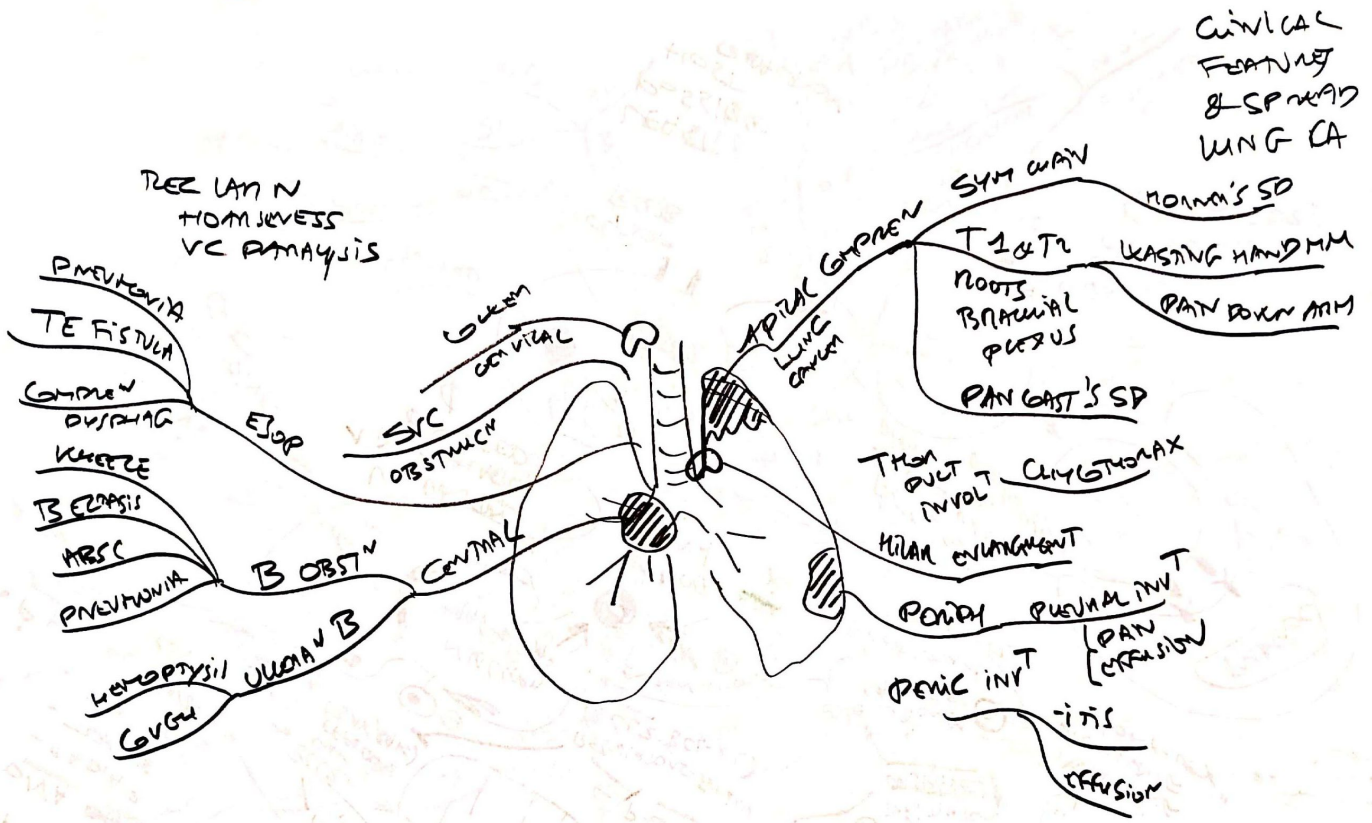 CLINICAL
FEATURES
& SPREAD
LUNG CA
REC LARY N
HOARSENESS
VC PARALYSIS
PNEUMONIA
TE FISTULA
COMPRE^N
DYSPHAG
ESOP
WHEEZE
B ECTASIS
ABSC
PNEUMONIA
B OBST^N
HEMOPTYSIS
COUGH
ULCERA^N B
CENTRAL
CERVICAL
SVC
OBSTRUC^N
APICAL COMPRE^N
LUNG
CANCER
SYM CHAIN
HORNER'S SD
T1 & T2
ROOTS
BRACHIAL
PLEXUS
WASTING HAND MM
PAIN DOWN ARM
PANCOAST'S SD
THOR
DUCT
INVOL^T
CHYLOTHORAX
HILAR ENLARGMENT
PERIPH
PLEURAL INV^T
PAIN
EFFUSION
PERIC INV^T
-ITIS
EFFUSION